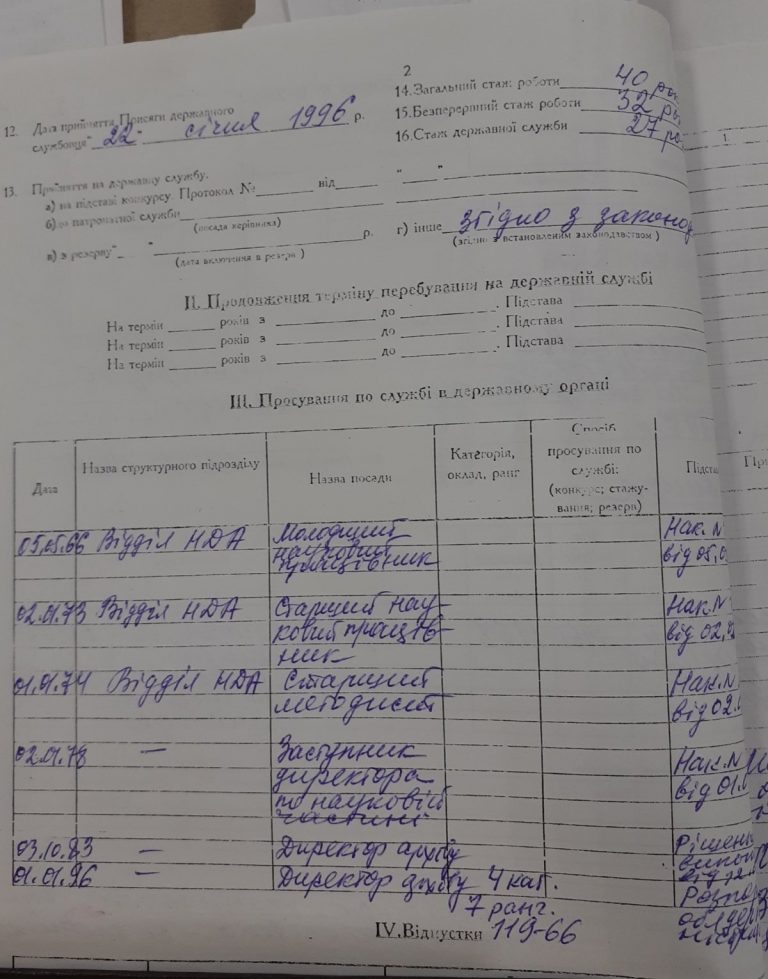 2
12. Дата прийняття Присяги державного
службовця " 22 " січня 1996 р.
14. Загальний стаж роботи 40 ро
15. Безперервний стаж роботи 32 ро
16. Стаж державної служби 27 ро
13. Прийняття на державну службу.
а) на підставі конкурсу. Протокол № ______ від ______ " "
б) до патронатної служби
(посада керівника)
в) з резерву "__ " ______ р.
(дата включення в резерв)
г) інше згідно з законод
(згідно з встановленим законодавством)
II. Продовження терміну перебування на державній службі
На термін ______ років з ______ до ______. Підстава
На термін ______ років з ______ до ______. Підстава
На термін ______ років з ______ до ______. Підстава
III. Просування по службі в державному органі
Дата
Назва структурного підрозділу
Назва посади
Категорія,
оклад, ранг
Спосіб
просування по
службі:
(конкурс; стажу-
вання; резерв)
Підста
При
05.05.66 Відділ НДА Молодший Нак. N
науковий від 05.0
працівник
02.01.73 Відділ НДА Старший нау- Нак. N
ковий праців- від 02.
ник
01.01.74 Відділ НДА Старший Нак. N
методист від 02.
02.01.78 — Заступник Нак. N
директора від 01.
по науковій
частині
03.10.83 — Директор архіву Рішен
викон
01.01.96 — Директор архіву 4 кат. Розпор
7 ранг. облдер
IV. Відпустки 119-66